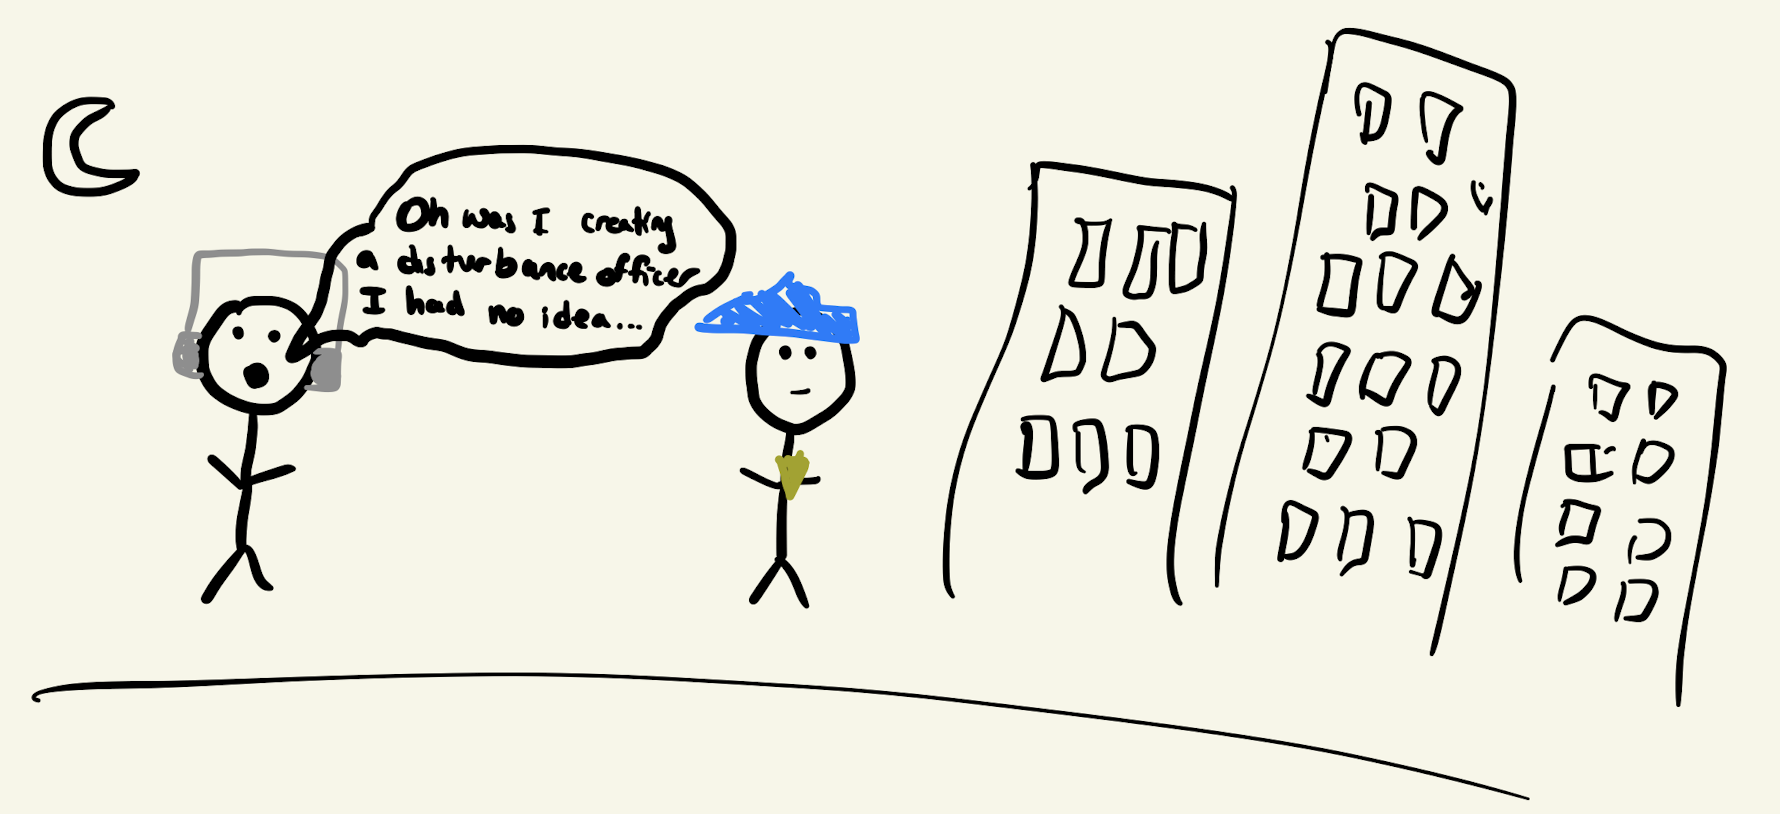 Oh was I creating
a disturbance officer
I had no idea...